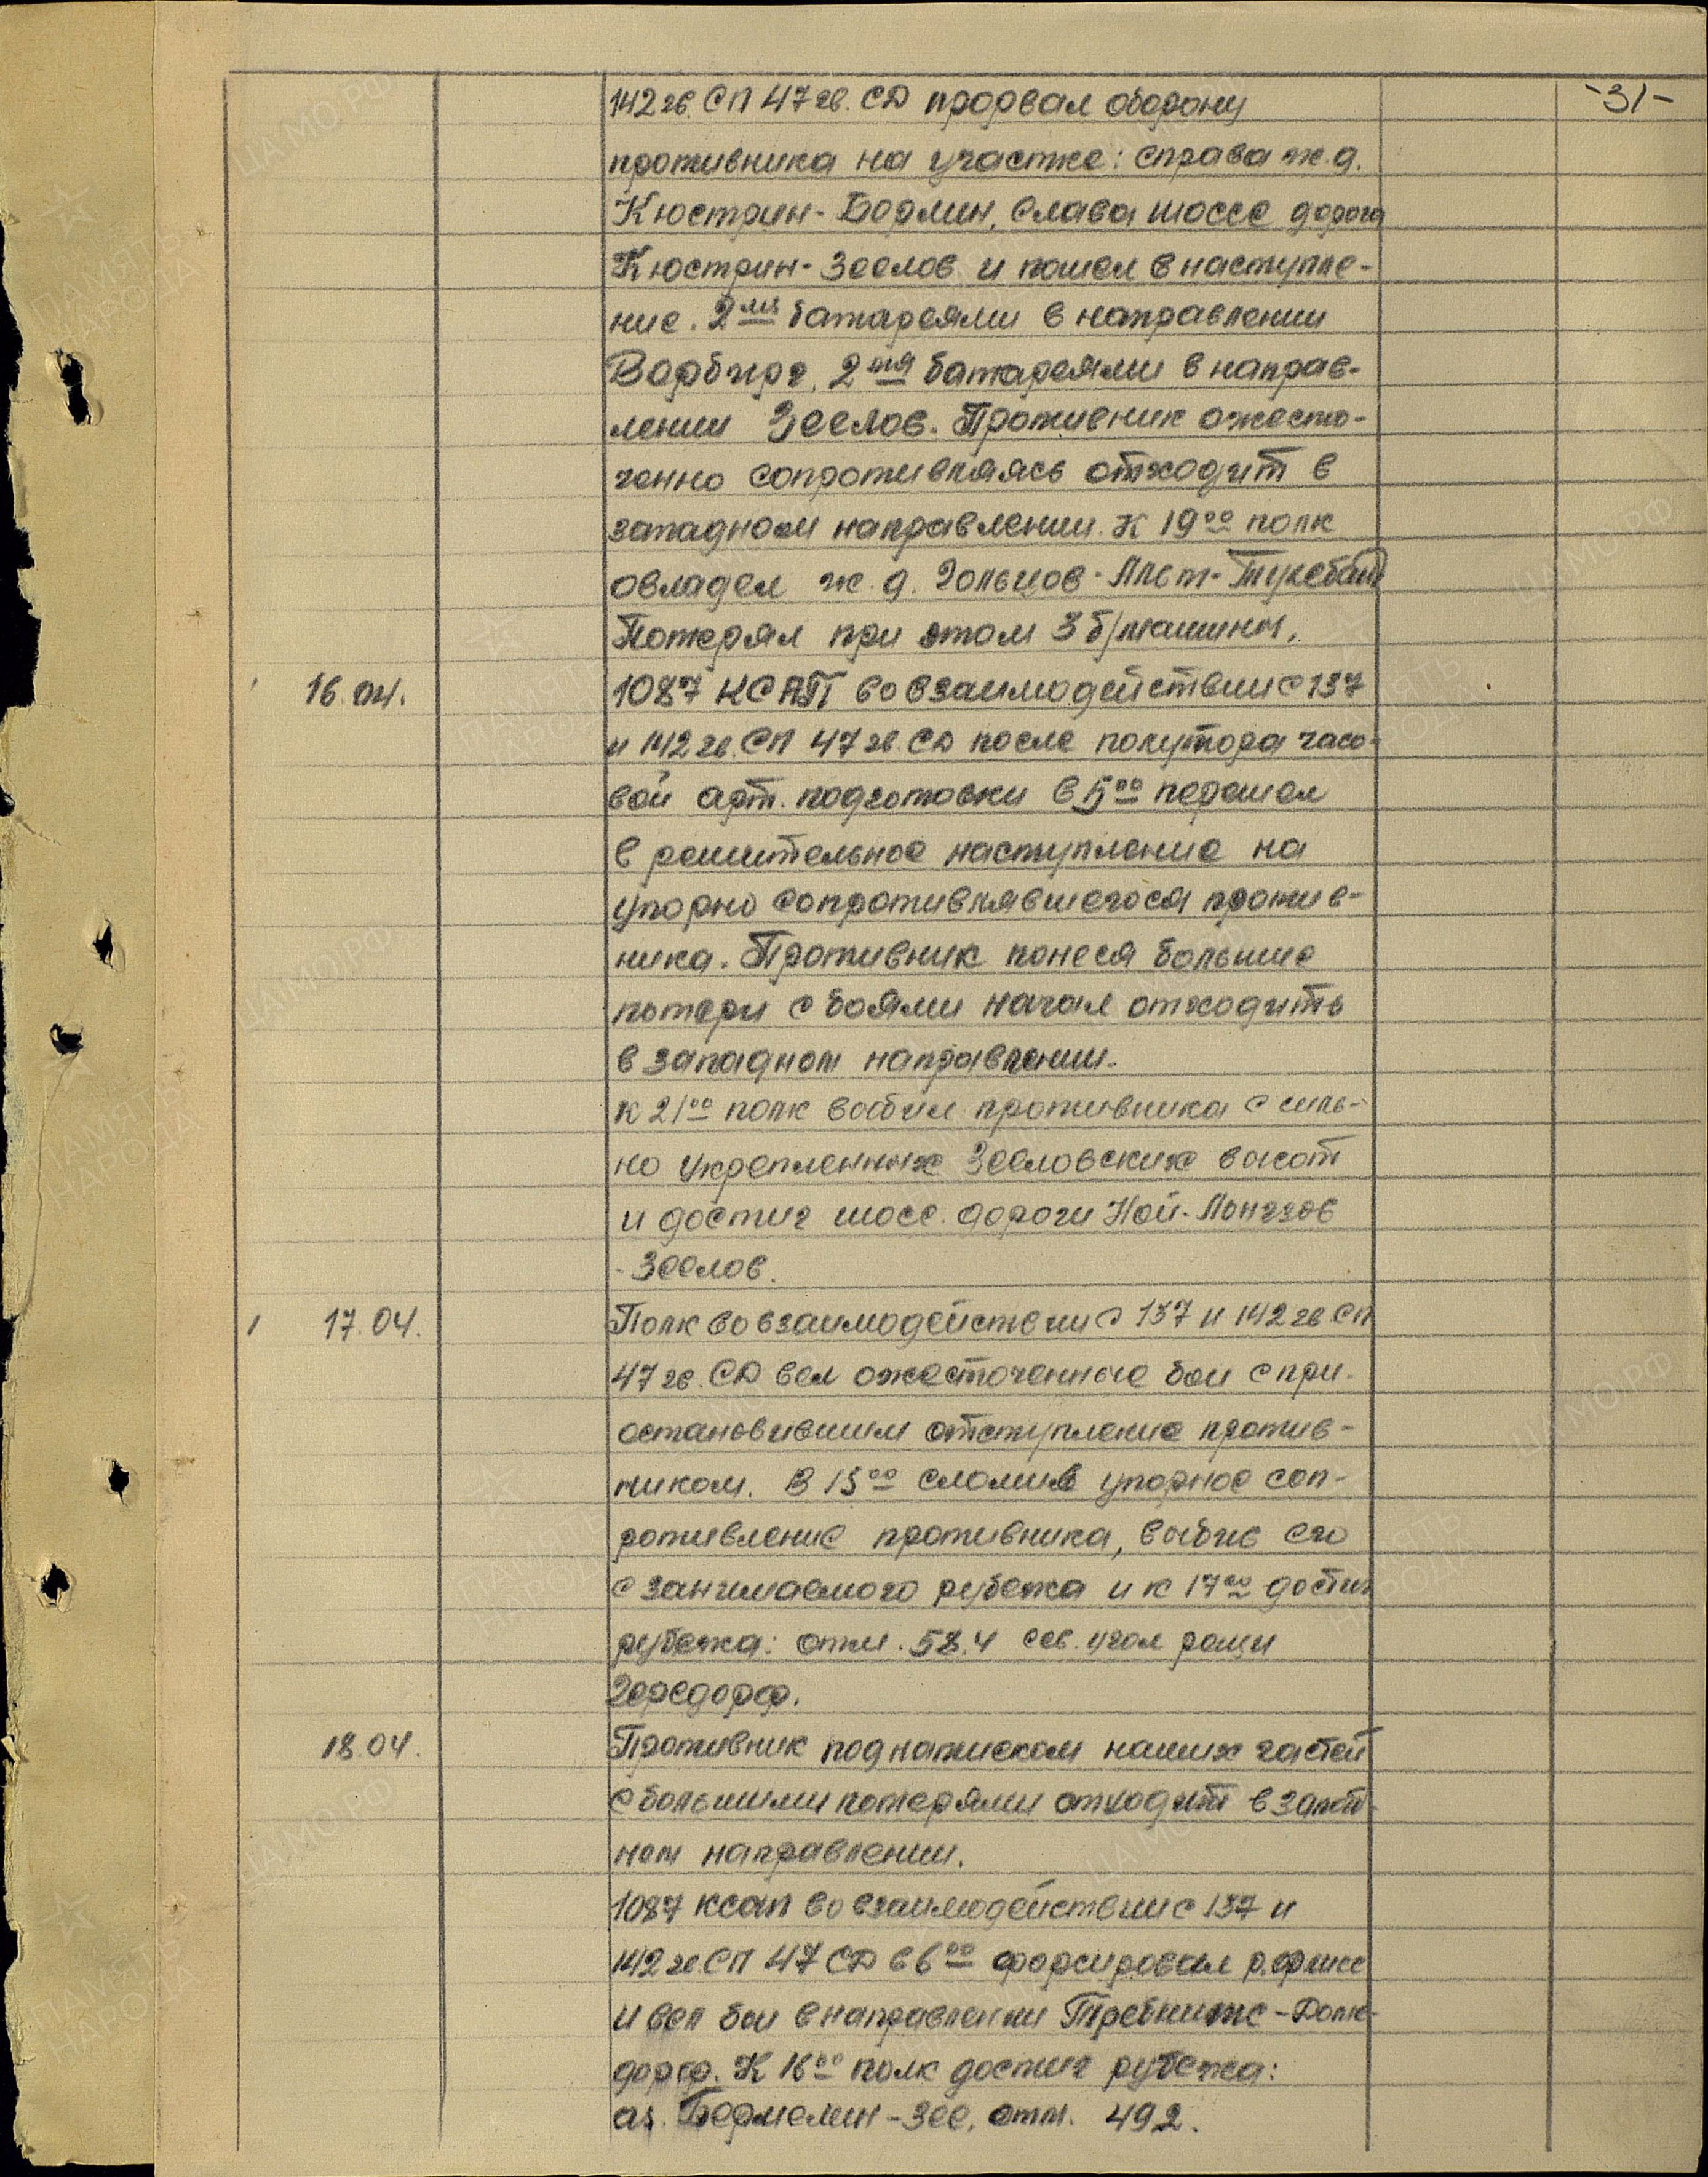 -31-
142 гв. СП 47 гв. СД прорвал оборону
противника на участке: справа ж.д.
Кюстрин-Берлин, слева шоссе дорога
Кюстрин-Зеелов и пошел в наступле-
ние. 2мя батареями в направлении
Вербиг, 2мя батареями в направ-
лении Зеелов. Противник ожесто-
ченно сопротивляясь отходит в
западном направлении. К 1900 полк
овладел ж.д. Гольцов-Альт-Тукебанд
Потерял при этом 3 б/машины.
16.04.
1087 КСАП во взаимодействии с 137
и 142 гв. СП 47 гв. СД после полутора часо-
вой арт. подготовки в 500 перешел
в решительное наступление на
упорно сопротивлявшегося против-
ника. Противник понеся большие
потери с боями начал отходить
в западном направлении.
К 2100 полк выбил противника с силь-
но укрепленных Зееловских высот
и достиг шосс. дороги Ной-Лангзов
-Зеелов.
17.04.
Полк во взаимодействии с 137 и 142 гв СП
47 гв. СД вел ожесточенные бои с при-
остановившим отступление против-
ником. В 1500 сломив упорное соп-
ротивление противника, выбив его
с занимаемого рубежа и к 1700 достиг
рубежа: отм. 58.4 сев. угол рощи
Герсдорф.
18.04.
Противник под натиском наших частей
с большими потерями отходит в запад-
ном направлении.
1087 ксап во взаимодействии с 137 и
142 гв СП 47 СД в 600 форсировал р. флисс
и вел бои в направлении Требниц-
дорф. К 1600 полк достиг рубежа:
оз. Гермелин-Зее, отм. 492.